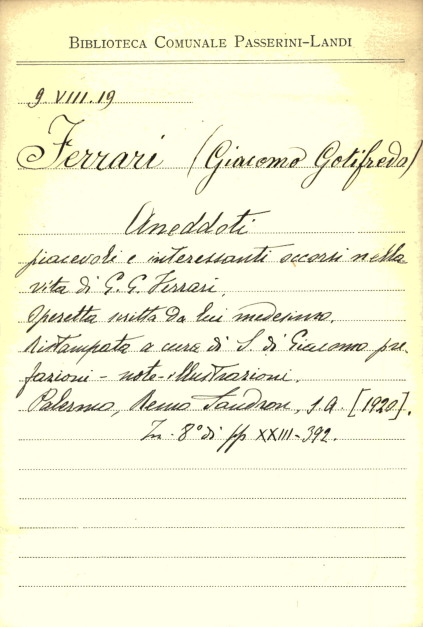 BIBLIOTECA COMUNALE PASSERINI-LANDI
9 VIII.19
Ferrari (Giacomo Gotifredo)
Aneddoti
piacevoli e interessanti occorsi nella
vita di G. G. Ferrari.
Operetta scritta da lui medesimo.
Ristampata a cura di S. di Giacomo pre-
fazioni - note - illustrazioni.
Palermo, Remo Sandron, s.a. [1920].
In-8° di pp XXIII-392.